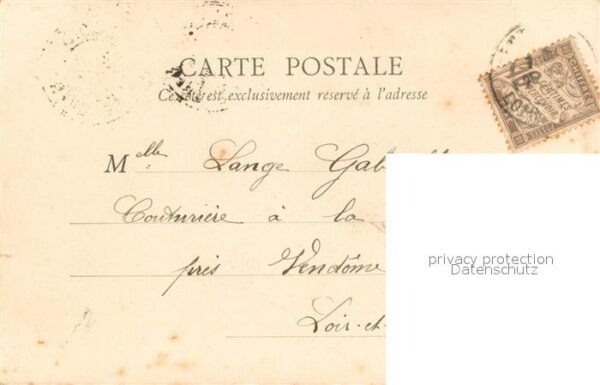 CARTE POSTALE
Ce côté est exclusivement réservé à l'adresse
Melle Lange Gab
Couturière à la
près Vendôme
Loir-et-
privacy protection
Datenschutz